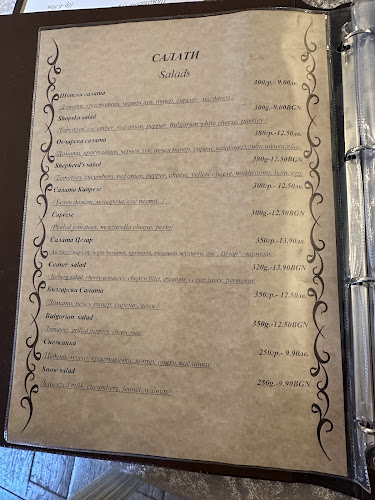 САЛАТИ
Salads
Шопска салата 300гр.- 9.60лв.
/Домати, краставици, червен лук, пипер, сирене, магданоз/
Shopska salad 300g.-9.60BGN
/Tomatoes, cucumber, red onion, pepper, Bulgarian white cheese, parsley/
Овчарска салата 380гр.-12.50лв.
/Домати, краставици, червен лук,
Shepherd's salad 380g-12.50BGN
/Tomatoes, cucumbers, red onion, pepper, cheese, yellow cheese, mushrooms, ham, egg
Салата Капрезе 300гр.- 12.50лв.
/Белен домат, моцарела, сос песто
Caprese 300g.-12.50BGN
/Peeled tomatoes, mozzarella cheese, pesto/
Салата Цезар 350гр.-13.90лв.
Ceaser salad 320g.-13.90BGN
cherry tomatoes, chicken fillet, croutons, parmesan
Българска Салата 350гр.- 12.50лв.
/Домати, печен пипер, сирене
Bulgarian salad 350g.-12.50BGN
/Tomato, grilled peppers, cheese
Снежанка 250гр.- 9.90лв.
мляко, краставички, копър, орехи, маслинки
Snow salad 250g.-9.90BGN
/Squeezed milk, cucumbers, fennel, walnuts/